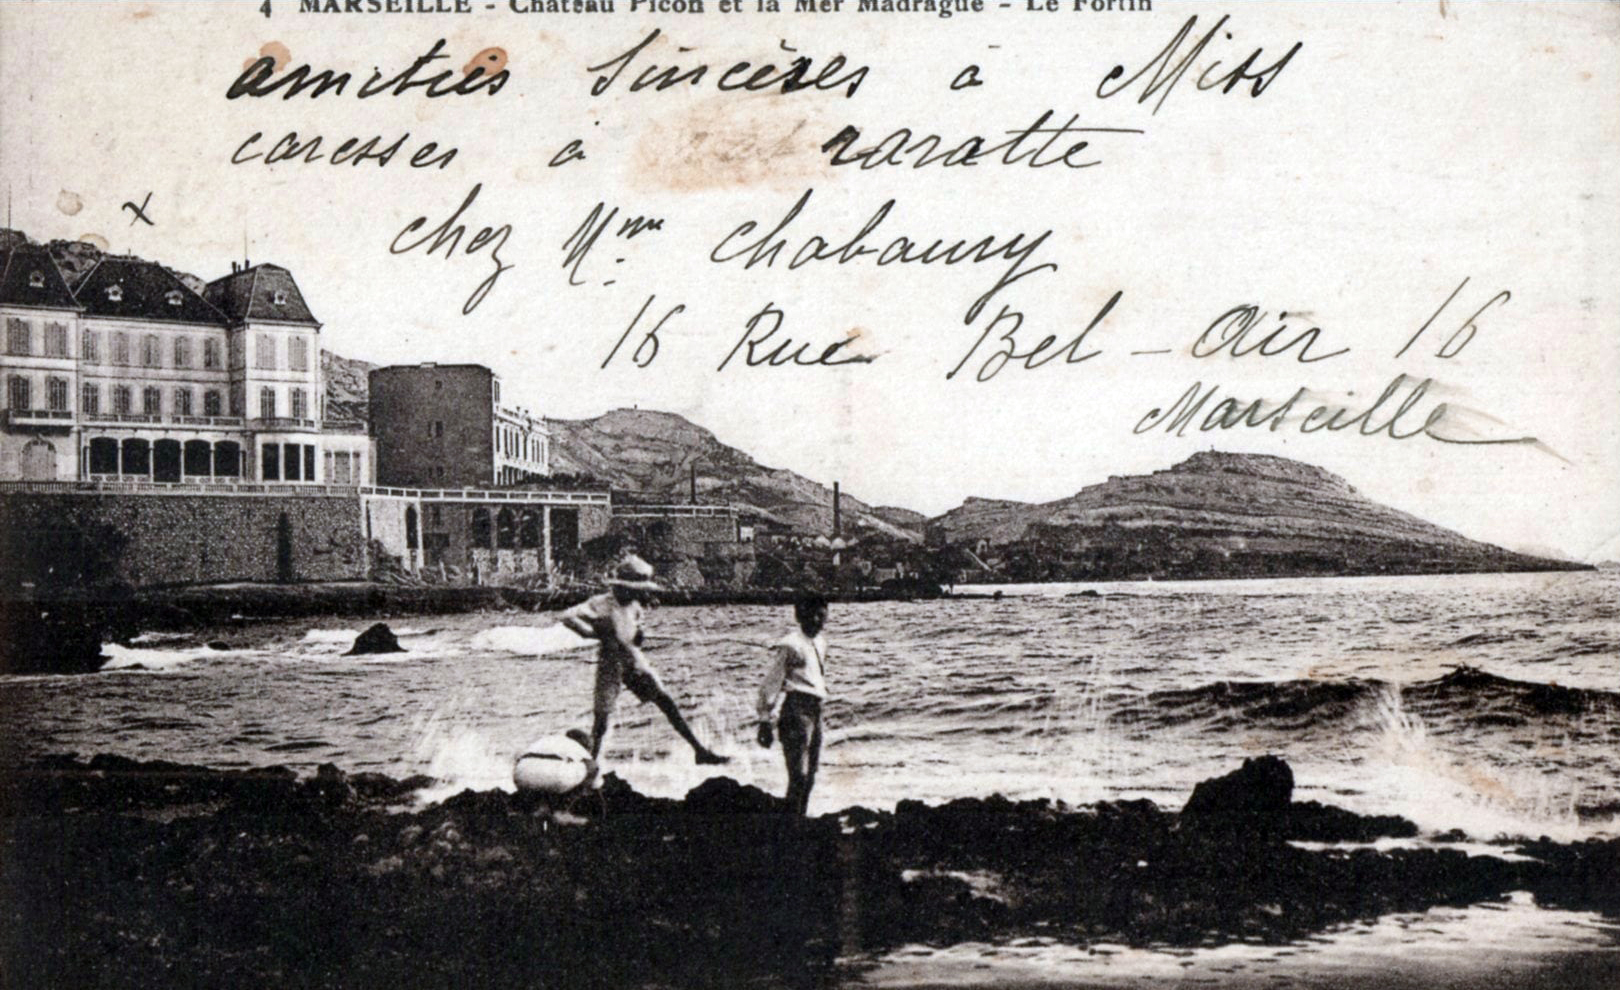 4 MARSEILLE - Château Picon et la Mer Madrague - Le Fortin
amitiés Sincères à Miss
caresses à raratte
x
chez Mme Chabaury
16 Rue Bel-Air 16
Marseille